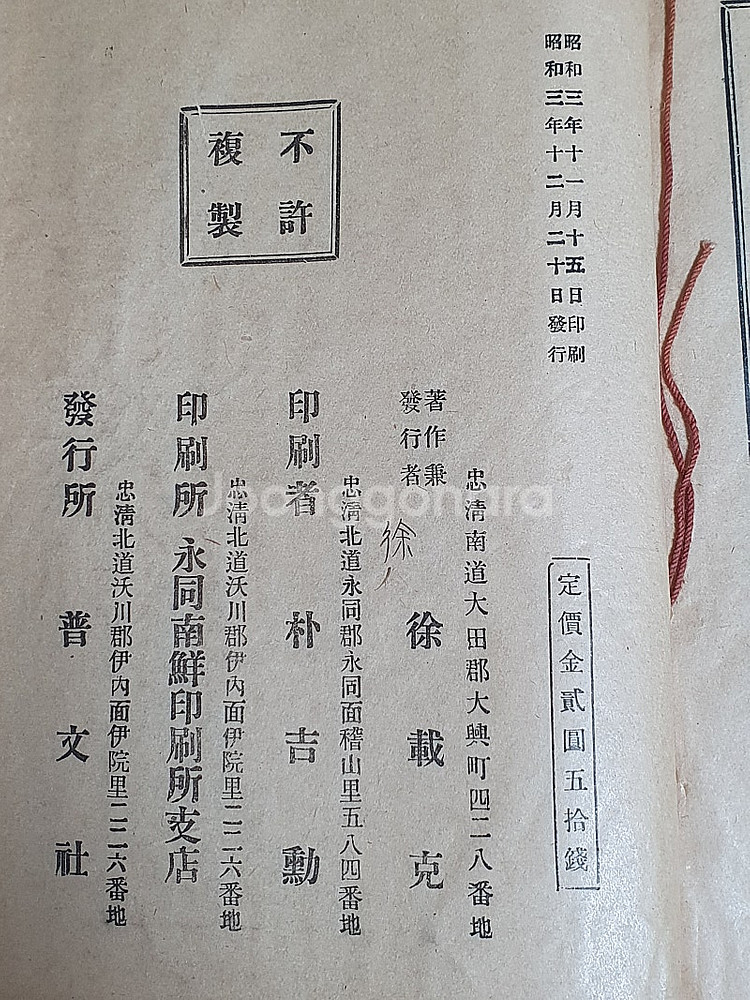 昭和三年十一月十五日印刷
昭和三年十二月二十日發行
不許
複製
定價金貳圓五拾錢
忠淸南道大田郡大興町四二八番地
著作兼
發行者
徐載克
徐
忠淸北道永同郡永同面稽山里五八四番地
印刷者 朴吉勳
忠淸北道沃川郡伊內面伊院里二二六番地
印刷所 永同南鮮印刷所支店
忠淸北道沃川郡伊內面伊院里二二六番地
發行所 普文社
Joonggonara